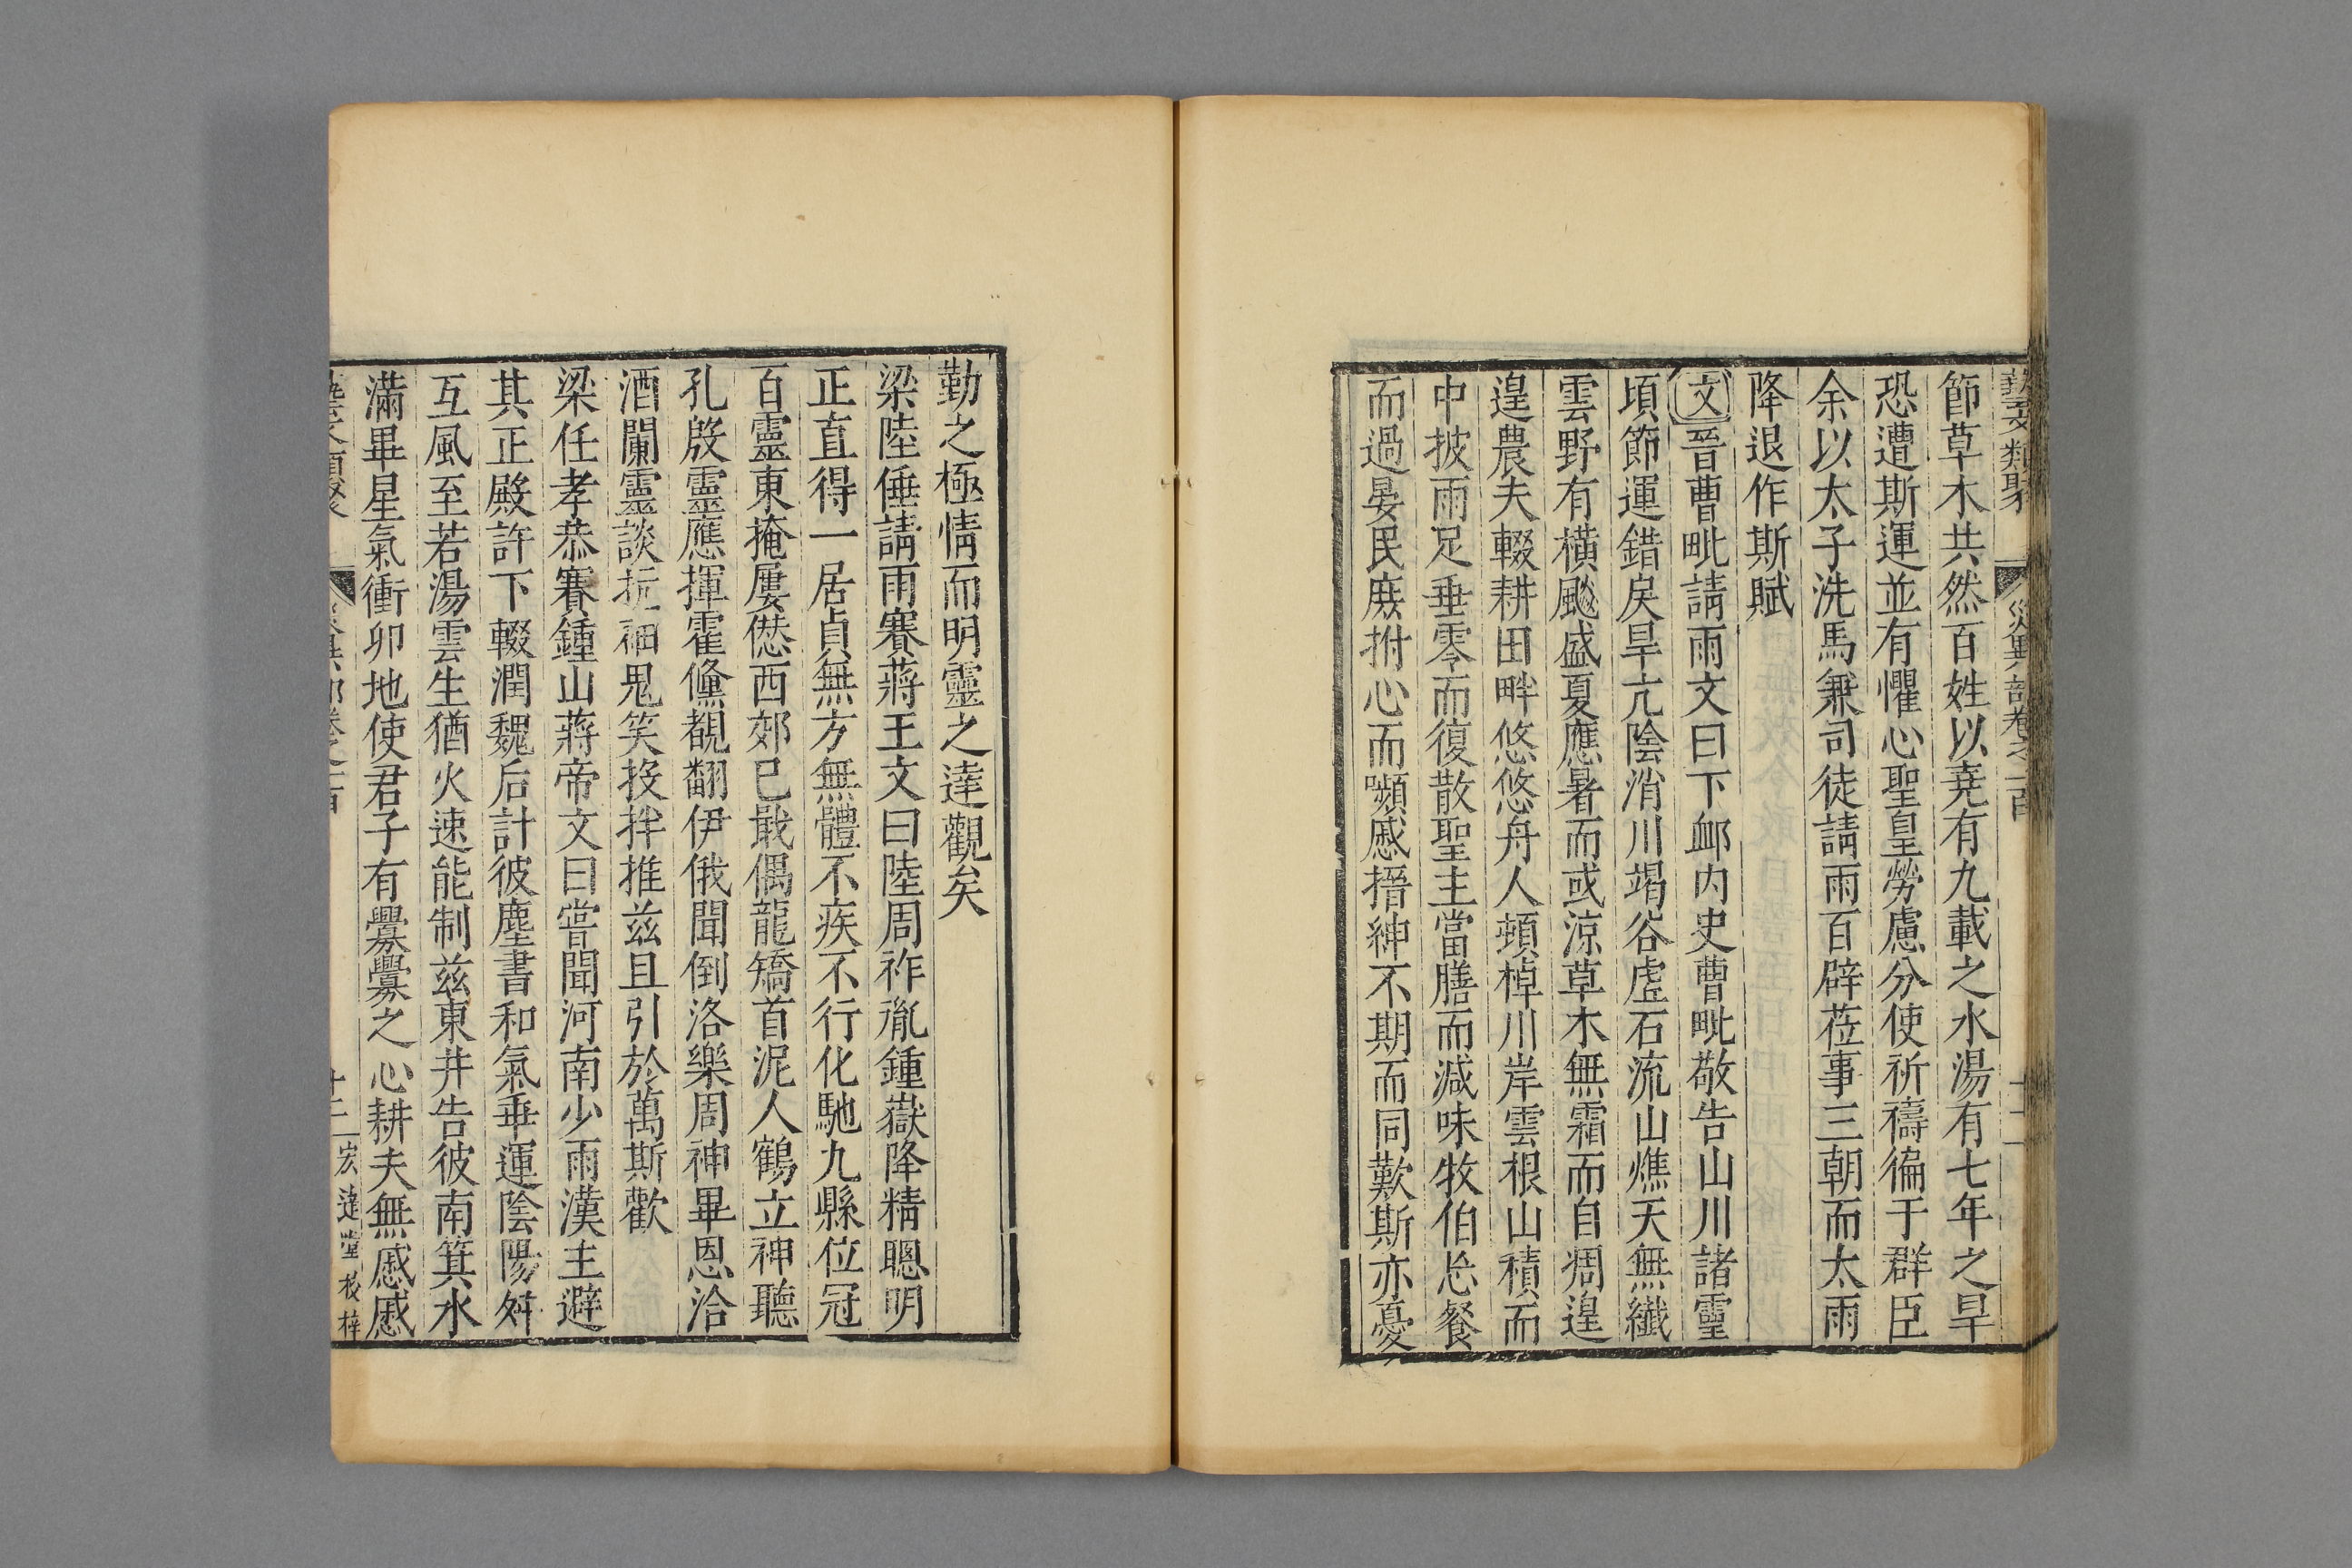 藝文類聚 災異部卷之一百 十一
節草木共然百姓以堯有九載之水湯有七年之旱
恐遭斯運並有懼心聖皇勞慮分使祈禱徧于群臣
余以太子洗馬兼司徒請雨百辟莅事三朝而太雨
降退作斯賦
文晉曹毗請雨文曰下邮内史曹毗敬告山川諸靈
頃節運錯戾旱亢陰消川竭谷虛石流山燋天無纖
雲野有橫飈盛夏應暑而或涼草木無霜而自凋遑
遑農夫輟耕田畔悠悠舟人頓棹川岸雲根山積而
中披雨足垂零而復散聖主當膳而減味牧伯忩餐
而過晏民庶拊心而嚬慼搢紳不期而同歎斯亦憂
勤之極情而明靈之達觀矣
梁陸倕請雨賽蔣王文曰陸周祚胤鍾嶽降精聰明
正直得一居貞無方無體不疾不行化馳九縣位冠
百靈東掩屢僁西郊已戢偶龍矯首泥人鶴立神聽
孔殷靈應揮霍儵覩翻伊俄聞倒洛樂周神畢恩洽
酒闌靈談抗袖鬼笑投拌推茲且引於萬斯歡
梁任孝恭賽鍾山蔣帝文曰嘗聞河南少雨漢主避
其正殿許下輟潤魏后計彼塵書和氣垂運陰陽舛
互風至若湯雲生猶火速能制茲東井告彼南箕水
滿畢星氣衝卯地使君子有爨爨之心耕夫無慼慼
十二 宏達堂校梓